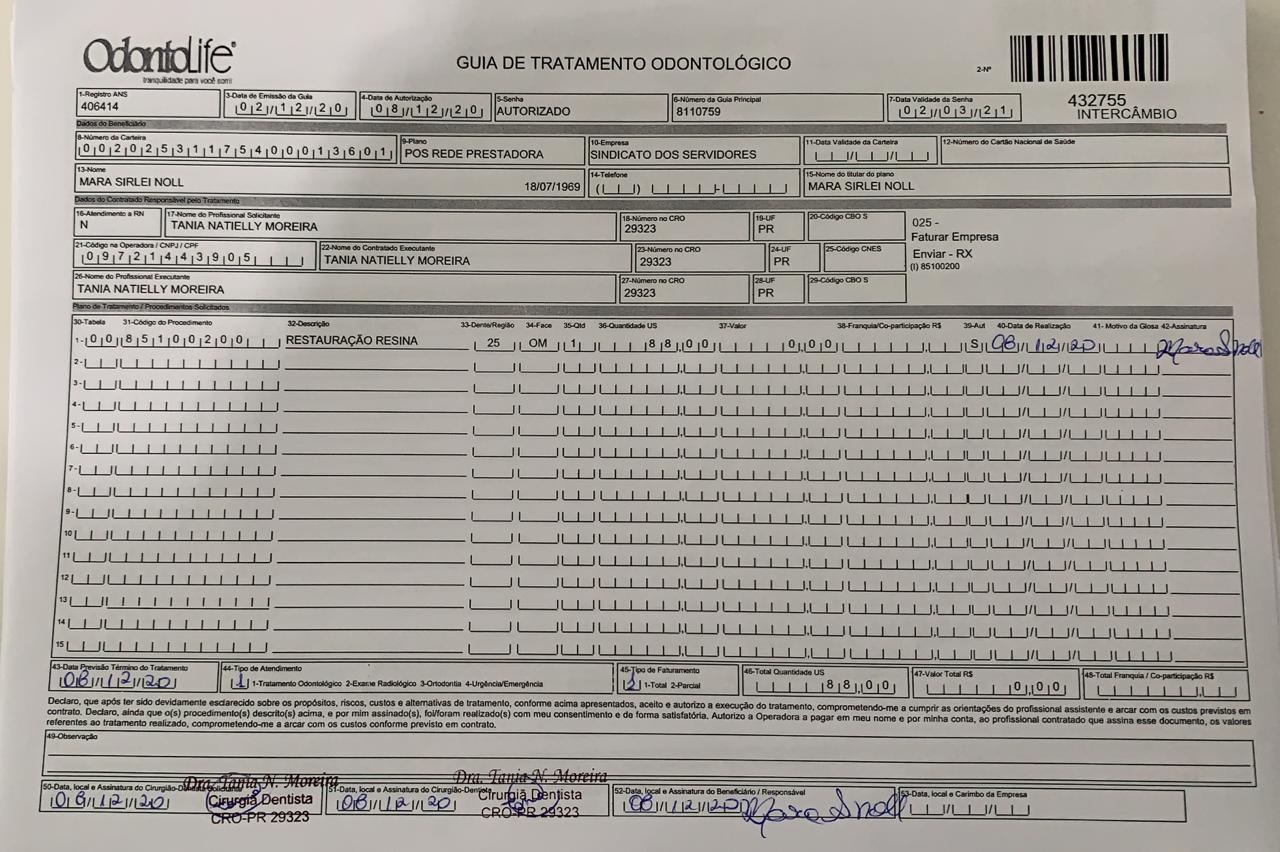 OdontoLife®
tranquilidade para você sorrir
GUIA DE TRATAMENTO ODONTOLÓGICO
2-Nº
432755
INTERCÂMBIO
1-Registro ANS
406414
3-Data de Emissão da Guia
02/12/20
4-Data de Autorização
08/12/20
5-Senha
AUTORIZADO
6-Número da Guia Principal
8110759
7-Data Validade da Senha
02/03/21
Dados do Beneficiário
8-Número da Carteira
00202531175400013601
9-Plano
POS REDE PRESTADORA
10-Empresa
SINDICATO DOS SERVIDORES
11-Data Validade da Carteira
12-Número do Cartão Nacional de Saúde
13-Nome
MARA SIRLEI NOLL 18/07/1969
14-Telefone
15-Nome do titular do plano
MARA SIRLEI NOLL
Dados do Contratado Responsável pelo Tratamento
16-Atendimento a RN
N
17-Nome do Profissional Solicitante
TANIA NATIELLY MOREIRA
18-Número no CRO
29323
19-UF
PR
20-Código CBO S
025 -
Faturar Empresa
Enviar - RX
(I) 85100200
21-Código na Operadora / CNPJ / CPF
09721443905
22-Nome do Contratado Executante
TANIA NATIELLY MOREIRA
23-Número no CRO
29323
24-UF
PR
25-Código CNES
26-Nome do Profissional Executante
TANIA NATIELLY MOREIRA
27-Número no CRO
29323
28-UF
PR
29-Código CBO S
Plano de Tratamento / Procedimentos Solicitados
30-Tabela 31-Código do Procedimento 32-Descrição 33-Dente/Região 34-Face 35-Qtd 36-Quantidade US 37-Valor 38-Franquia/Co-participação R$ 39-Aut 40-Data de Realização 41- Motivo da Glosa 42-Assinatura
1- 00 85100200 RESTAURAÇÃO RESINA 25 OM 1 88,00 0,00 S 08/12/20 Mara S Noll
2-
3-
4-
5-
6-
7-
8-
9-
10
11
12
13
14
15
43-Data Previsão Término do Tratamento
08/12/20
44-Tipo de Atendimento
1 1-Tratamento Odontológico 2-Exame Radiológico 3-Ortodontia 4-Urgência/Emergência
45-Tipo de Faturamento
1-Total 2-Parcial
46-Total Quantidade US
88,00
47-Valor Total R$
0,00
48-Total Franquia / Co-participação R$
Declaro, que após ter sido devidamente esclarecido sobre os propósitos, riscos, custos e alternativas de tratamento, conforme acima apresentados, aceito e autorizo a execução do tratamento, comprometendo-me a cumprir as orientações do profissional assistente e arcar com os custos previstos em
contrato. Declaro, ainda que o(s) procedimento(s) descrito(s) acima, e por mim assinado(s), foi/foram realizado(s) com meu consentimento e de forma satisfatória. Autorizo a Operadora a pagar em meu nome e por minha conta, ao profissional contratado que assina esse documento, os valores
referentes ao tratamento realizado, comprometendo-me a arcar com os custos conforme previsto em contrato.
49-Observação
50-Data, local e Assinatura do Cirurgião-Dentista Solicitante
08/12/20
Dra. Tania N. Moreira
Cirurgiã Dentista
CRO-PR 29323
51-Data, local e Assinatura do Cirurgião-Dentista
08/12/20
Dra. Tania N. Moreira
Cirurgiã Dentista
CRO-PR 29323
52-Data, local e Assinatura do Beneficiário / Responsável
08/12/20 Mara S Noll
53-Data, local e Carimbo da Empresa